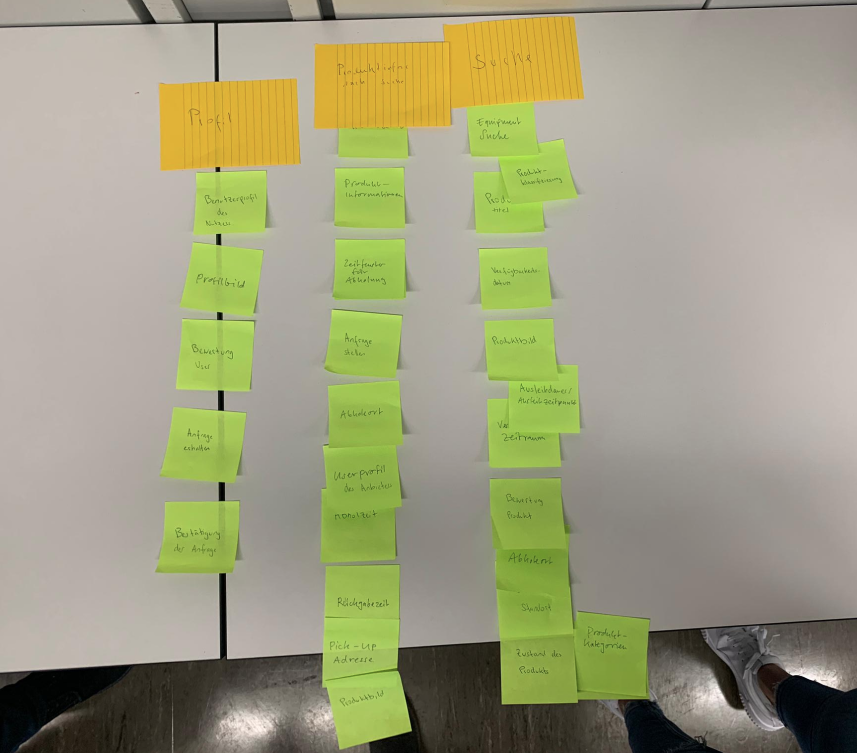 Profil
Benutzerprofil
des
Nutzers
Profilbild
Bewertung
User
Anfrage
erhalten
Bestätigung
der Anfrage
Produktinfos
nach Suche
Produkt-
informationen
Zeitfenster
für
Abholung
Anfrage
Abholort
Userprofil
des Anbieters
Rückgabezeit
Pick-Up
Adresse
Produktbild
Suche
Equipment
Suche
Produkt-
Produkt
Verfügbarkeits-
Produktbild
Ausleihdauer/
Ausleihzeitpunkt
Zeitraum
Bewertung
Produkt
Abholort
Standort
Zustand des
Produkts
Produkt-
kategorien